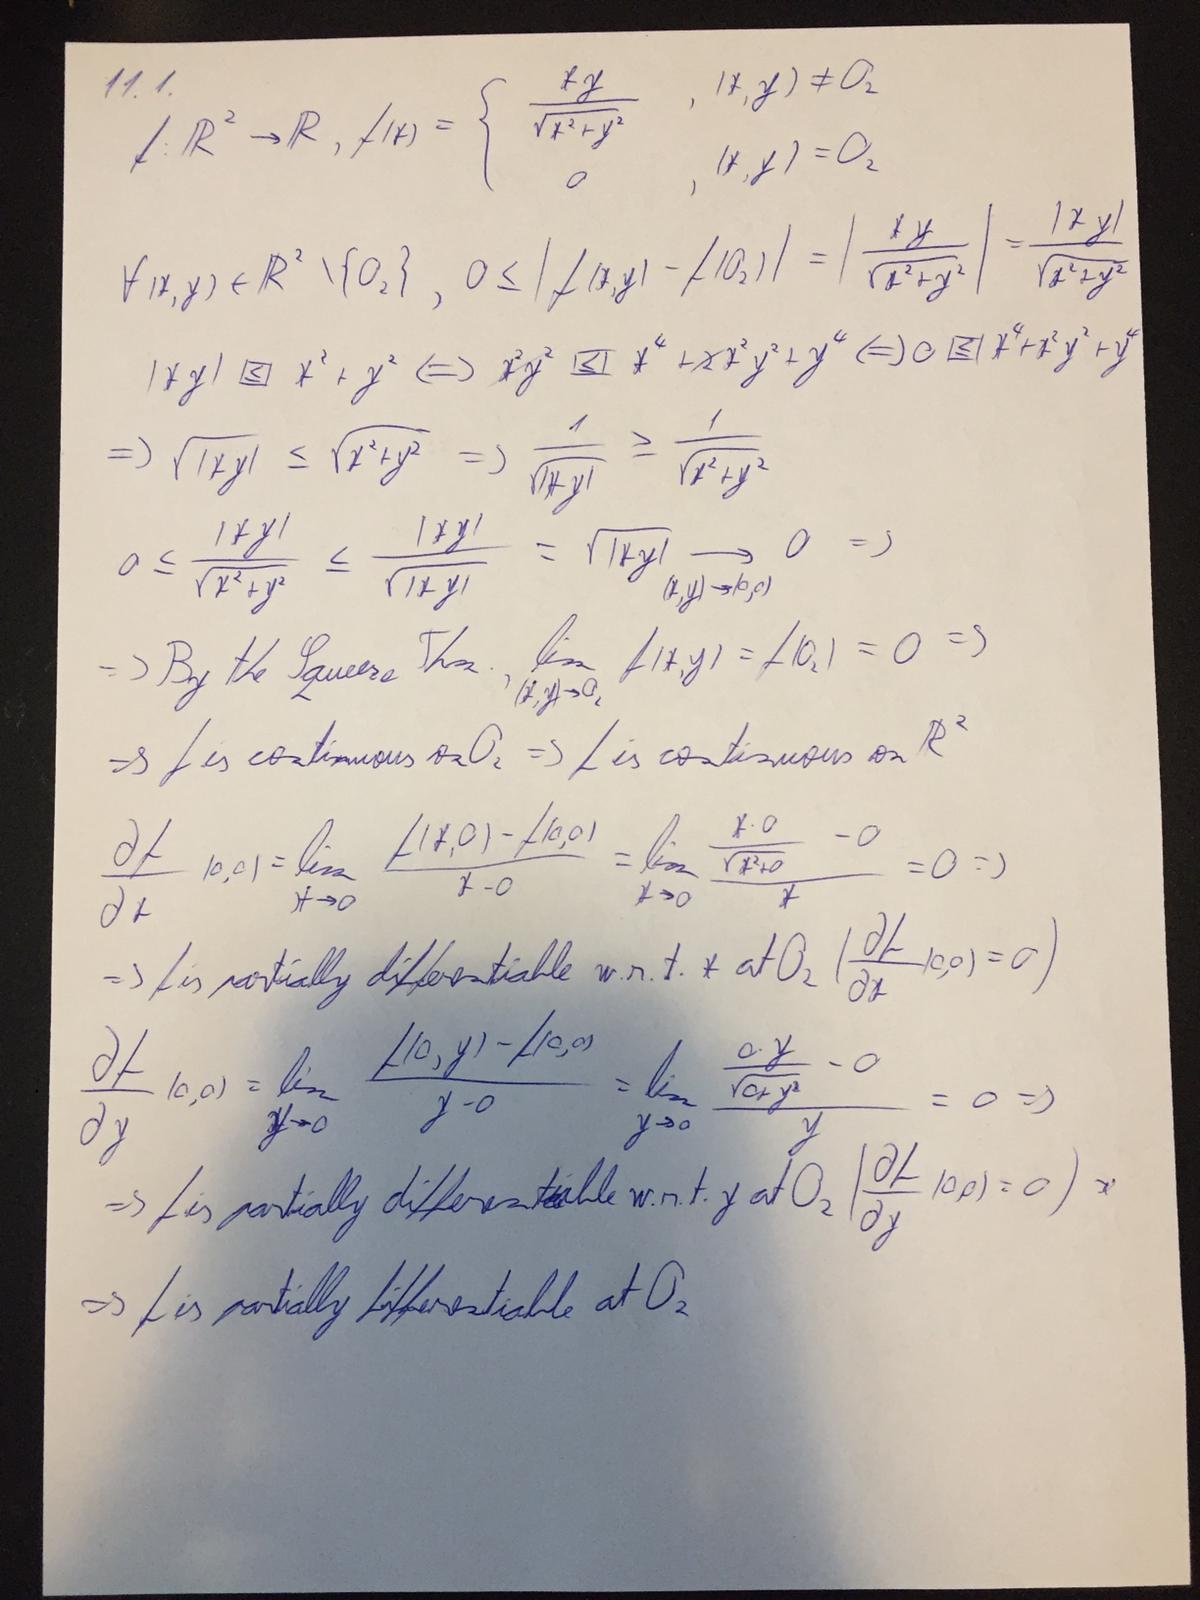 11.1.
f: ℝ² → ℝ, f(x) = { xy / √(x²+y²) , (x,y) ≠ O₂
0 , (x,y) = O₂
∀(x,y) ∈ ℝ² \ {O₂}, 0 ≤ |f(x,y) - f(O₂)| = | xy / √(x²+y²) | = |xy| / √(x²+y²)
|xy| ≤ x² + y² (=) x²y² ≤ x⁴ + 2x²y² + y⁴ (=) 0 ≤ x⁴+x²y²+y⁴
=> √|xy| ≤ √(x²+y²) => 1/√|xy| ≥ 1/√(x²+y²)
0 ≤ |xy| / √(x²+y²) ≤ |xy| / √|xy| = √|xy| → 0 (x,y)→(0,0) =>
=> By the Squeeze Thm., lim (x,y)→O₂ f(x,y) = f(O₂) = 0 =>
=> f is continuous on O₂ => f is continuous on ℝ²
∂f/∂x (0,0) = lim x→0 (f(x,0) - f(0,0)) / (x-0) = lim x→0 (x·0/√(x²+0) - 0) / x = 0 =>
=> f is partially differentiable w.r.t. x at O₂ (∂f/∂x (0,0) = 0)
∂f/∂y (0,0) = lim y→0 (f(0,y) - f(0,0)) / (y-0) = lim y→0 (0·y/√(0+y²) - 0) / y = 0 =>
=> f is partially differentiable w.r.t. y at O₂ (∂f/∂y (0,0) = 0)
=> f is partially differentiable at O₂